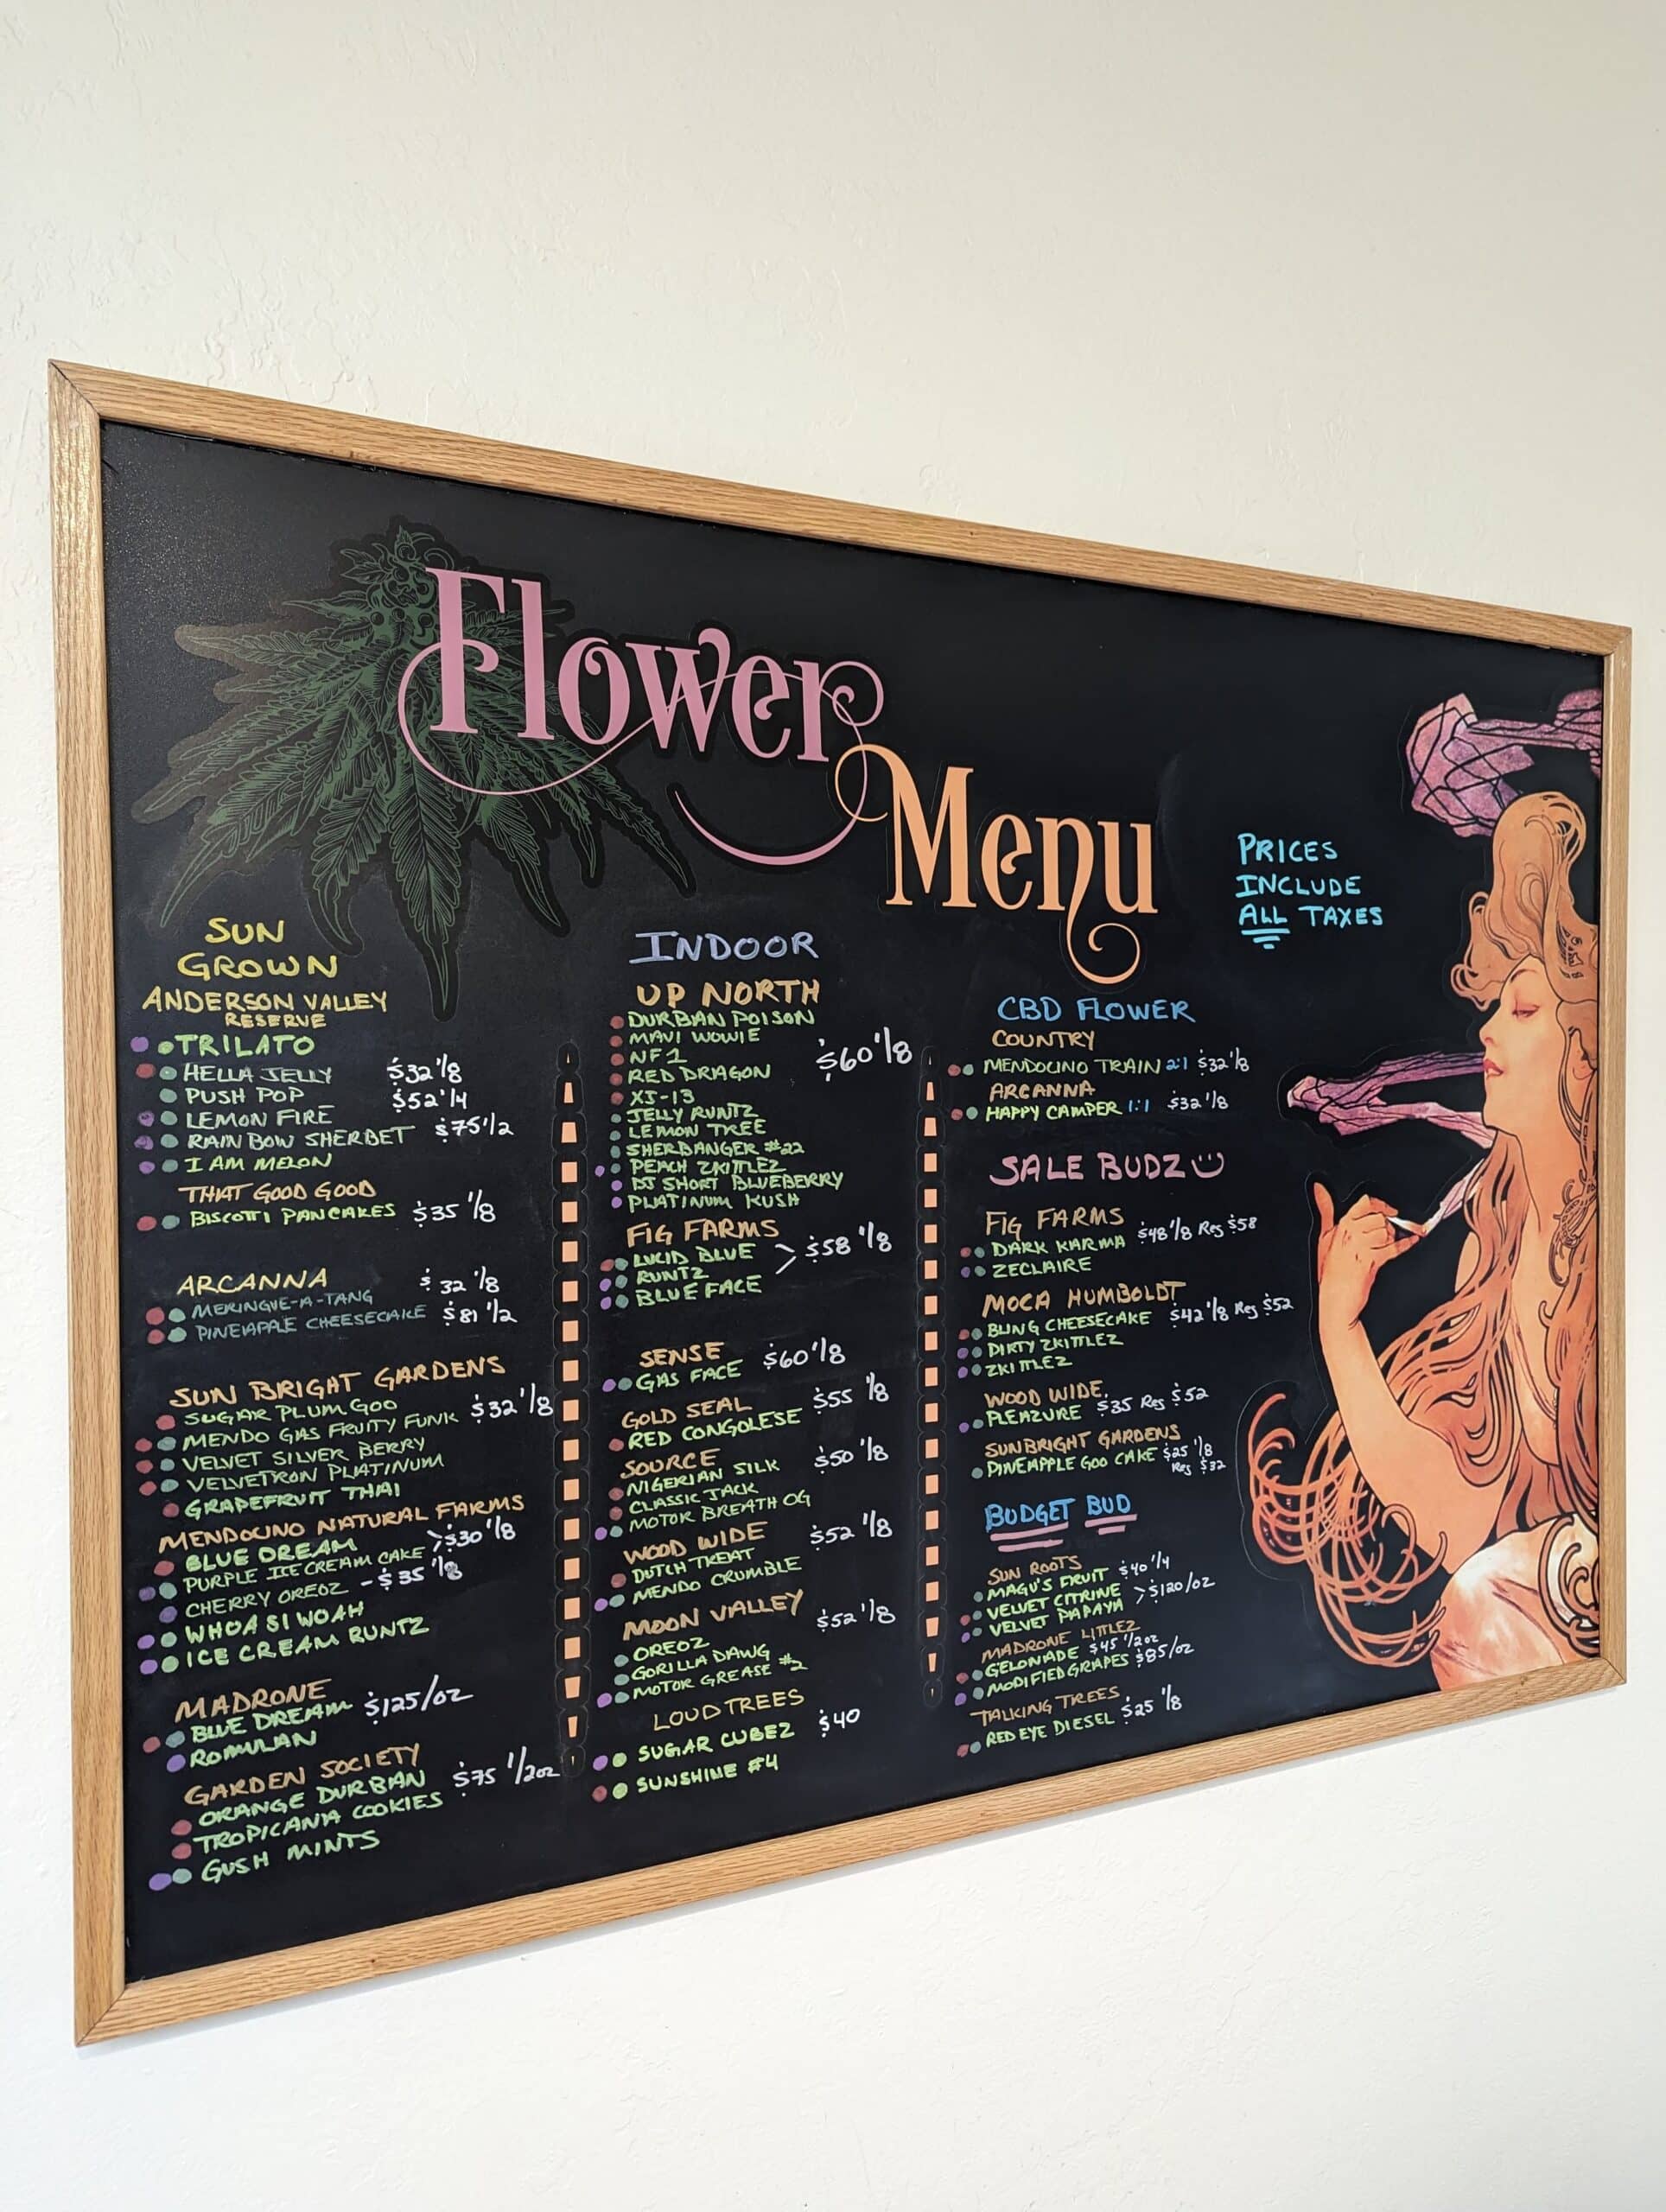 Flower
Menu
PRICES
INCLUDE
ALL TAXES
SUN
GROWN
ANDERSON VALLEY
RESERVE
TRILATO
HELLA JELLY $32 1/8
PUSH POP $52 1/4
LEMON FIRE
RAINBOW SHERBET $75 1/2
I AM MELON
THAT GOOD GOOD
BISCOTTI PANCAKES $35 1/8
ARCANNA $32 1/8
MERINGUE-A-TANG
PINEAPPLE CHEESECAKE $81 1/2
SUN BRIGHT GARDENS
SUGAR PLUM GOO $32 1/8
MENDO GAS FRUITY FUNK
VELVET SILVER BERRY
VELVETRON PLATINUM
GRAPEFRUIT THAI
MENDOCINO NATURAL FARMS
BLUE DREAM >$30 1/8
PURPLE ICE CREAM CAKE
CHERRY OREOZ -$35 1/8
WHOA SI WOAH
ICE CREAM RUNTZ
MADRONE
BLUE DREAM $125/OZ
ROMULAN
GARDEN SOCIETY
ORANGE DURBIAN $75 1/2oz
TROPICANA COOKIES
GUSH MINTS
INDOOR
UP NORTH
DURBAN POISON
MAVI WOWIE
NF1 $60 1/8
RED DRAGON
XJ-13
JELLY RUNTZ
LEMON TREE
SHERBANGER #22
PEACH ZKITTLEZ
DJ SHORT BLUEBERRY
PLATINUM KUSH
FIG FARMS
LUCID BLUE > $58 1/8
RUNTZ
BLUE FACE
SENSE $60 1/8
GAS FACE
GOLD SEAL $55 1/8
RED CONGOLESE
SOURCE $50 1/8
NIGERIAN SILK
CLASSIC JACK
MOTOR BREATH OG
WOOD WIDE $52 1/8
DUTCH TREAT
MENDO CRUMBLE
MOON VALLEY $52 1/8
OREOZ
GORILLA DAWG
MOTOR GREASE #2
LOUD TREES
SUGAR CUBEZ $40
SUNSHINE #4
CBD FLOWER
COUNTRY
MENDOCINO TRAIN 2:1 $32 1/8
ARCANNA
HAPPY CAMPER 1:1 $32 1/8
SALE BUDZ
FIG FARMS $48 1/8 Reg $58
DARK KARMA
ZECLAIRE
MOCA HUMBOLDT
BLING CHEESECAKE $42 1/8 Reg $52
DIRTY ZKITTLEZ
ZKITTLEZ
WOOD WIDE
PLEAZURE $35 Reg $52
SUNBRIGHT GARDENS
PINEAPPLE GOO CAKE $25 1/8
Reg $32
BUDGET BUD
SUN ROOTS
MAGU'S FRUIT $40 1/4
VELVET CITRINE >$120/OZ
VELVET PAPAYA
MADRONE LITTLEZ
GELONADE $45 1/2oz
MODIFIED GRAPES $85/OZ
TALKING TREES
RED EYE DIESEL $25 1/8